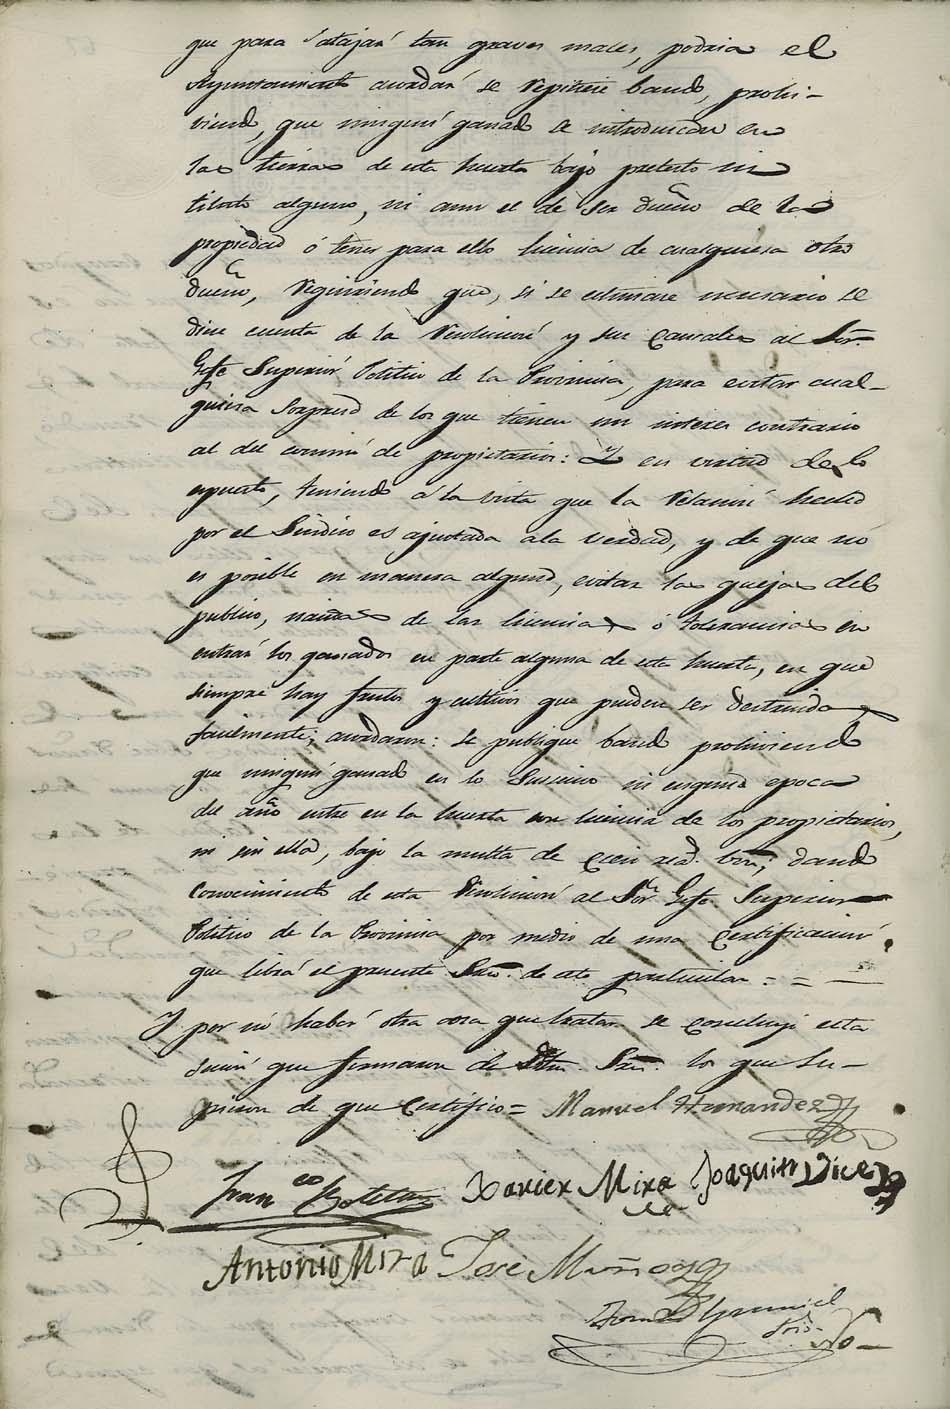 que para atajar tan graves males, podria el
Ayuntamiento acordar se repitiese bando, prohi-
viendo, que ningun ganado se introduzca en
las tierras de esta huerta bajo pretesto ni
titulo alguno, ni aun el de ser dueño de la
propiedad ó tener para ello licencia de cualquiera otro
dueño, requiriendo que, si se estimare necesario se
diese cuenta de la resolucion y sus causales al Sor.
Gefe Superior Politico de la Provincia, para evitar cual-
quiera sorpresa de los que tienen un interes contrario
al del comun de propietarios: Y en virtud de lo
espuesto, teniendo á la vista que la relacion hecha
por el Sindico es ajustada a la verdad, y de que no
es posible en manera alguna, evitar las quejas del
publico, nacidas de las licencias ó tolerancias en
entrar los ganados en parte alguna de esta huerta, en que
siempre hay frutos y cultivos que pueden ser destruidos
facilmente; acordaron: se publique bando prohiviendo
que ningun ganado en lo sucesivo ni en epoca
del año entre en la huerta con licencia de los propietarios,
ni sin ella, bajo la multa de cien rs. vn.; dando
conocimiento de esta resolucion al Sor. Gefe Superior
Politico de la Provincia por medio de una certificacion
que librá el presente Srio. de este particular = =
Y por no haber otra cosa que tratar se concluyó esta
sesion que firmaron de los que su-
pieron de que certifico = Manuel Hernandez
Franco Botella Xavier Mira Joaquin Dies
Antonio Mira José Muñoz
Srio.